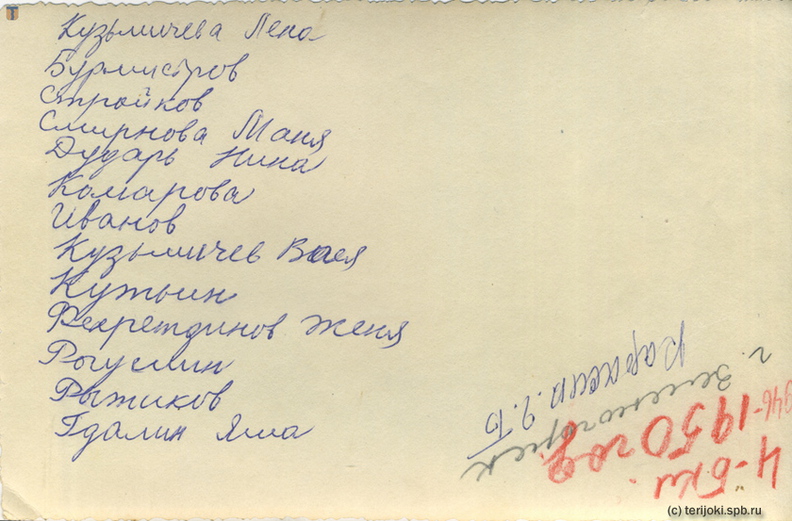 Кузьмичева Лена
Бурмистров
Стройков
Смирнова Маня
Дударь Нина
Комарова
Иванов
Кузьмичев Вася
Кутьин
Фехретдинов Женя
Рогулин
Рыжиков
Гдалин Яша
г. Зеленогорск
1950 год
4-5 кл.
(c) terijoki.spb.ru